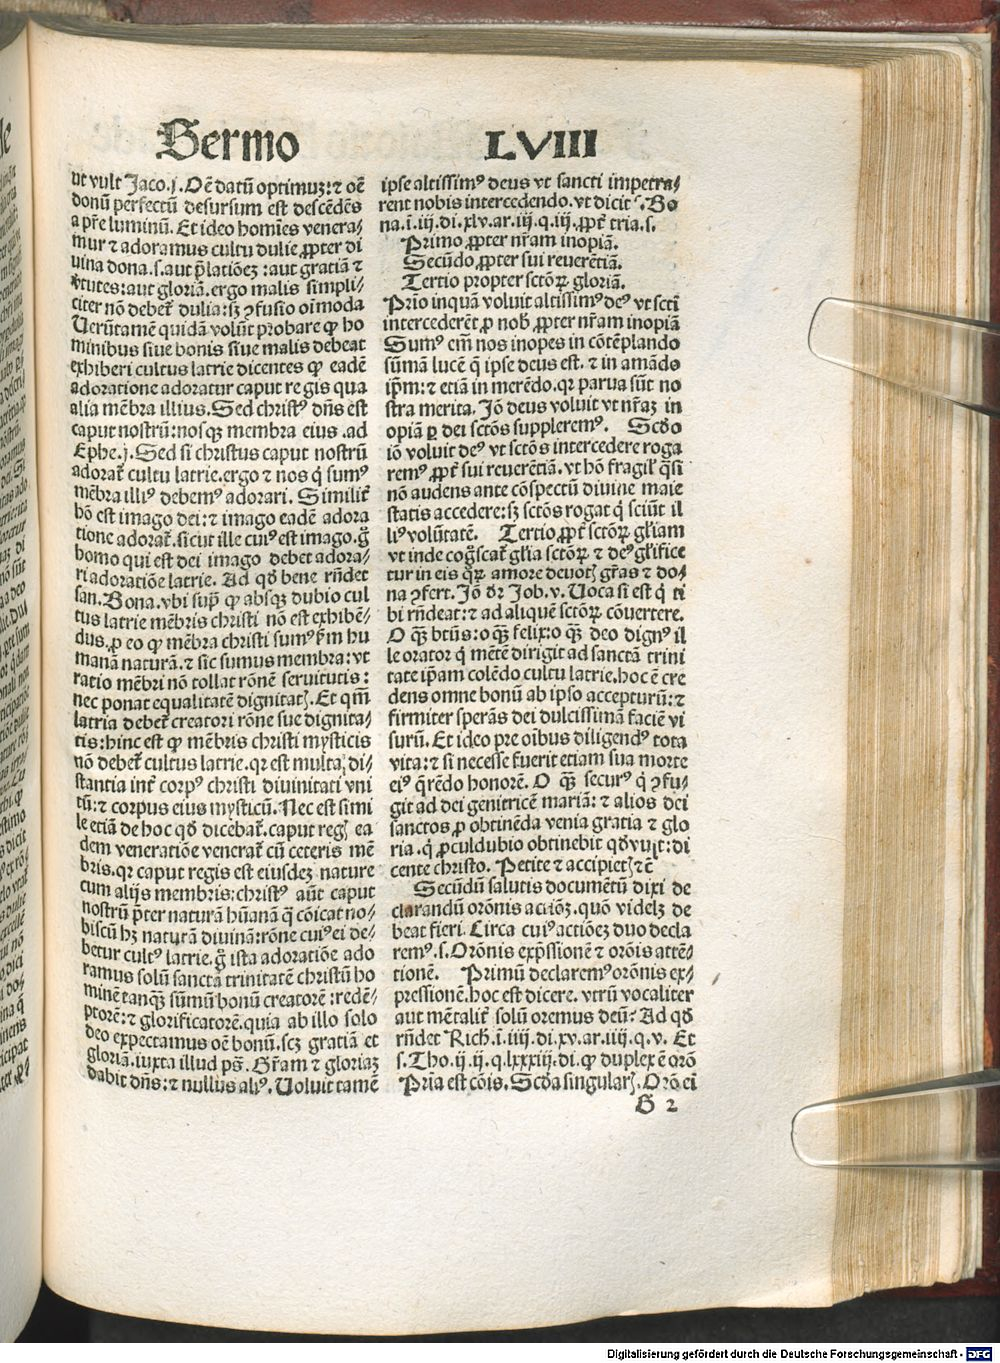 Sermo LVIII
ut vult Jaco.j. Oē datū optimuꝫ: ⁊ oē
donū perfectū desursum est descēdēs
a pr̄e luminū. Et ideo homīes venera-
mur ⁊ adoramus cultu dulie ꝓpter di
uina dona .s. aut p̄latiōeꝫ: aut gratiā ⁊
v̓tutes: aut gloriā. ergo malis simpli-
citer nō debet᷑ dulia: sꝫ ꝯfusio oīmoda
Verūtamē quidā volūt probare ꝙ ho
minibus siue bonis siue malis debeat
exhiberi cultus latrie dicentes ꝙ eadē
adoratione adoratur caput regis qua
alia mēbra illius. Sed christꝰ dn̄s ēst
caput nostrū: nosqꝫ membra eius .ad
Ephe.j. Sed si christus caput nostrū
adorat᷑ cultu latrie. ergo ⁊ nos q̇ sumꝰ
mēbra illiꝰ debemꝰ adorari. Similit᷑
hō est imago dei: ⁊ imago eadē adora
tione adorat᷑. sicut ille cuiꝰ est imago. g̊
homo qui est dei imago debet adora-
ri adoratiōe latrie. Ad qd̄ bene rn̄det
san. Bona. vbi supͣ ꝙ absqꝫ dubio cul
tus latrie mēbris christi nō est exhibē-
dus. ꝓ eo ꝙ mēbra christi sumꝰ ẜm hu
manā naturā. ⁊ sic sumus membra: vt
ratio mēbri nō tollat rōnē seruitutis:
nec ponat equalitatē dignitatꝭ. Et qm̄
latria debet᷑ creatori rōne sue dignita-
tis: hinc est ꝙ mēbris christi mysticis
nō debet᷑ cultus latrie. qr est multa di-
stantia int᷑ corpꝰ christi diuinitati vni
tū: ⁊ corpus eius mysticū. Nec est simi
le etiā de hoc qd̄ dicebat᷑. caput regꝭ ea
dem veneratiōe venerat᷑ cū ceteris mē
bris. qr caput regis est eiusdeꝫ nature
cum alijs membris: christꝰ aūt caput
nostrū p̄ter naturā hūanā q̄ cōicat no-
biscū hꝫ naturā diuinā: rōne cuiꝰ ei de-
betur cultꝰ latrie. g̊ ista adoratiōe ado
ramus solū sanctā trinitatē christū ho
minē tanqꝫ sūmū bonū creatorē: redē-
ptorē: ⁊ glorificatorē. quia ab illo solo
deo expectamus oē bonū. scꝫ gratiā et
gloriā. iuxta illud ps̄. Gr̄am ⁊ gloriaꝫ
dabit dn̄s: ⁊ nullus aliꝰ. Voluit tamē
ipse altissimꝰ deus vt sancti impetra-
rent nobis intercedendo. vt dicit s. Bo
na. ī. iij. di. xlv. ar. iij. q. iij. ꝓpt᷑ tria. s.
Primo ꝓpter nr̄am inopiā.
Secūdo ꝓpter sui reuerētiā.
Tertio propter sctōꝝ gloriā.
Prīo inquā voluit altissimꝰ deꝰ vt sctī
intercederēt ꝓ nob̓ ꝓpter nr̄am inopiā
Sumꝰ em̄ nos inopes in cōtēplando
sūmā lucē q̄ ipse deus est. ⁊ in amādo
ip̄m: ⁊ etiā in merēdo. qr parua sūt no
stra merita. Jō deus voluit vt nr̄aꝫ in
opiā ꝑ dei sctōs suppleremꝰ. Scd̄o
iō voluit deꝰ vt sctōs intercedere roga
remꝰ ꝓpt᷑ sui reuerētiā. vt hō fragil̓ q̄si
nō audens ante cōspectū diuine maie
statis accedere: sꝫ sctōs rogat q̇ sciūt il
liꝰ volūtatē. Tertio ꝓpt᷑ sctōꝝ gl̓iam
vt inde cog̊scat᷑ gl̓ia sctōꝝ ⁊ deꝰ gl̓ifice
tur in eis q̊ꝝ amore deuotꝭ gr̄as ⁊ do-
na ꝯfert. Jō dr̄ Job. v. Uoca si est q̇ ti
bi rn̄deat: ⁊ ad aliquē sctōꝝ cōuertere.
O qꝫ̄ bt̄us: o qꝫ̄ felix: o qꝫ̄ deo dignꝰ il
le orator q̇ mētē dirigit ad sanctā trini
tatē ip̄am colēdo cultu latrie. hoc ē cre
dens omne bonū ab ipso accepturū: ⁊
firmiter sperās dei dulcissimā faciē vi
surū. Et ideo pre oībus diligendꝰ tota
vita: ⁊ si necesse fuerit etiam sua morte
eiꝰ q̄rēdo honorē. O qꝫ̄ securꝰ q̇ ꝯfu-
git ad dei genitricē mariā: ⁊ alios dei
sanctos ꝓ obtinēda venia gratia ⁊ glo
ria. q̇ ꝓculdubio obtinebit qd̄ vult: di
cente christo. Petite ⁊ accipietꝭ ⁊c̄
Secūdū salutis documētū dixi de
clarandū orōnis actiōꝫ. quō videlꝫ de
beat fieri. Circa cuiꝰ actiōeꝫ duo decla
remꝰ .s. Orōnis exp̄ssionē ⁊ orōis attē-
tionē. Primū declaremꝰ orōnis ex-
pressionē. hoc est dicere. vtrū vocaliter
aut mētalit᷑ solū oremus deū? Ad qd̄
rn̄det Rich. ī. iiij. di. xv. ar. iiij. q. v. Et
s. Tho. ij. ij. q. lxxxiij. di. ꝙ duplex ē orō
Pr̄ia est cōis. Scd̄a singularꝭ. Orō ei
G 2
Digitalisierung gefördert durch die Deutsche Forschungsgemeinschaft - DFG